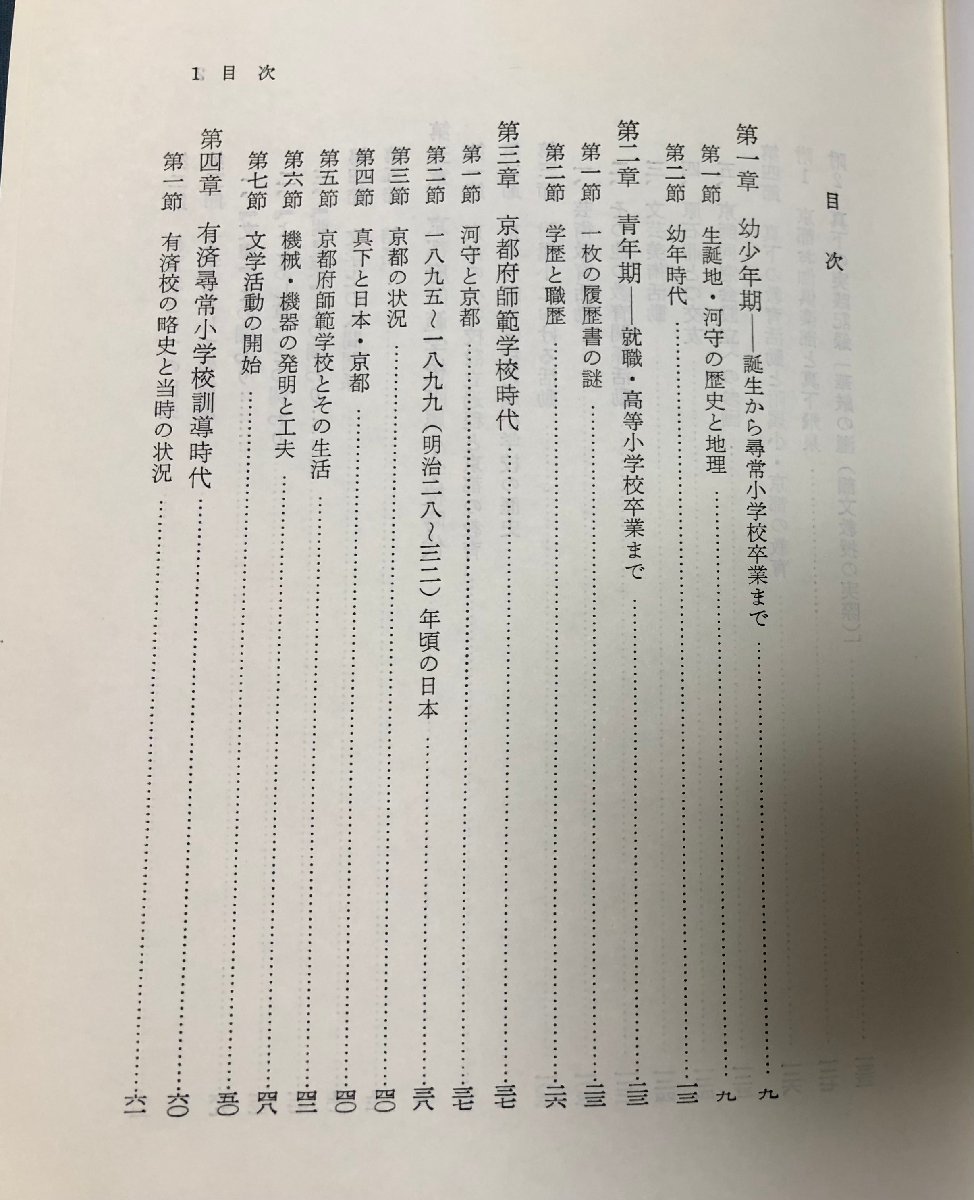 1 目次
目次
第一章 幼少年期——誕生から尋常小学校卒業まで……九
第一節 生誕地・河守の歴史と地理……九
第二節 幼年時代……一三
第二章 青年期——就職・高等小学校卒業まで……二三
第一節 一枚の履歴書の謎……二三
第二節 学歴と職歴……二六
第三章 京都府師範学校時代……三七
第一節 河守と京都……三七
第二節 一八九五〜一八九九（明治二八〜三二）年頃の日本……三八
第三節 京都の状況……四〇
第四節 真下と日本・京都……四〇
第五節 京都府師範学校とその生活……四三
第六節 機械・機器の発明と工夫……四八
第七節 文学活動の開始……五〇
第四章 有済尋常小学校訓導時代……六〇
第一節 有済校の略史と当時の状況……六一